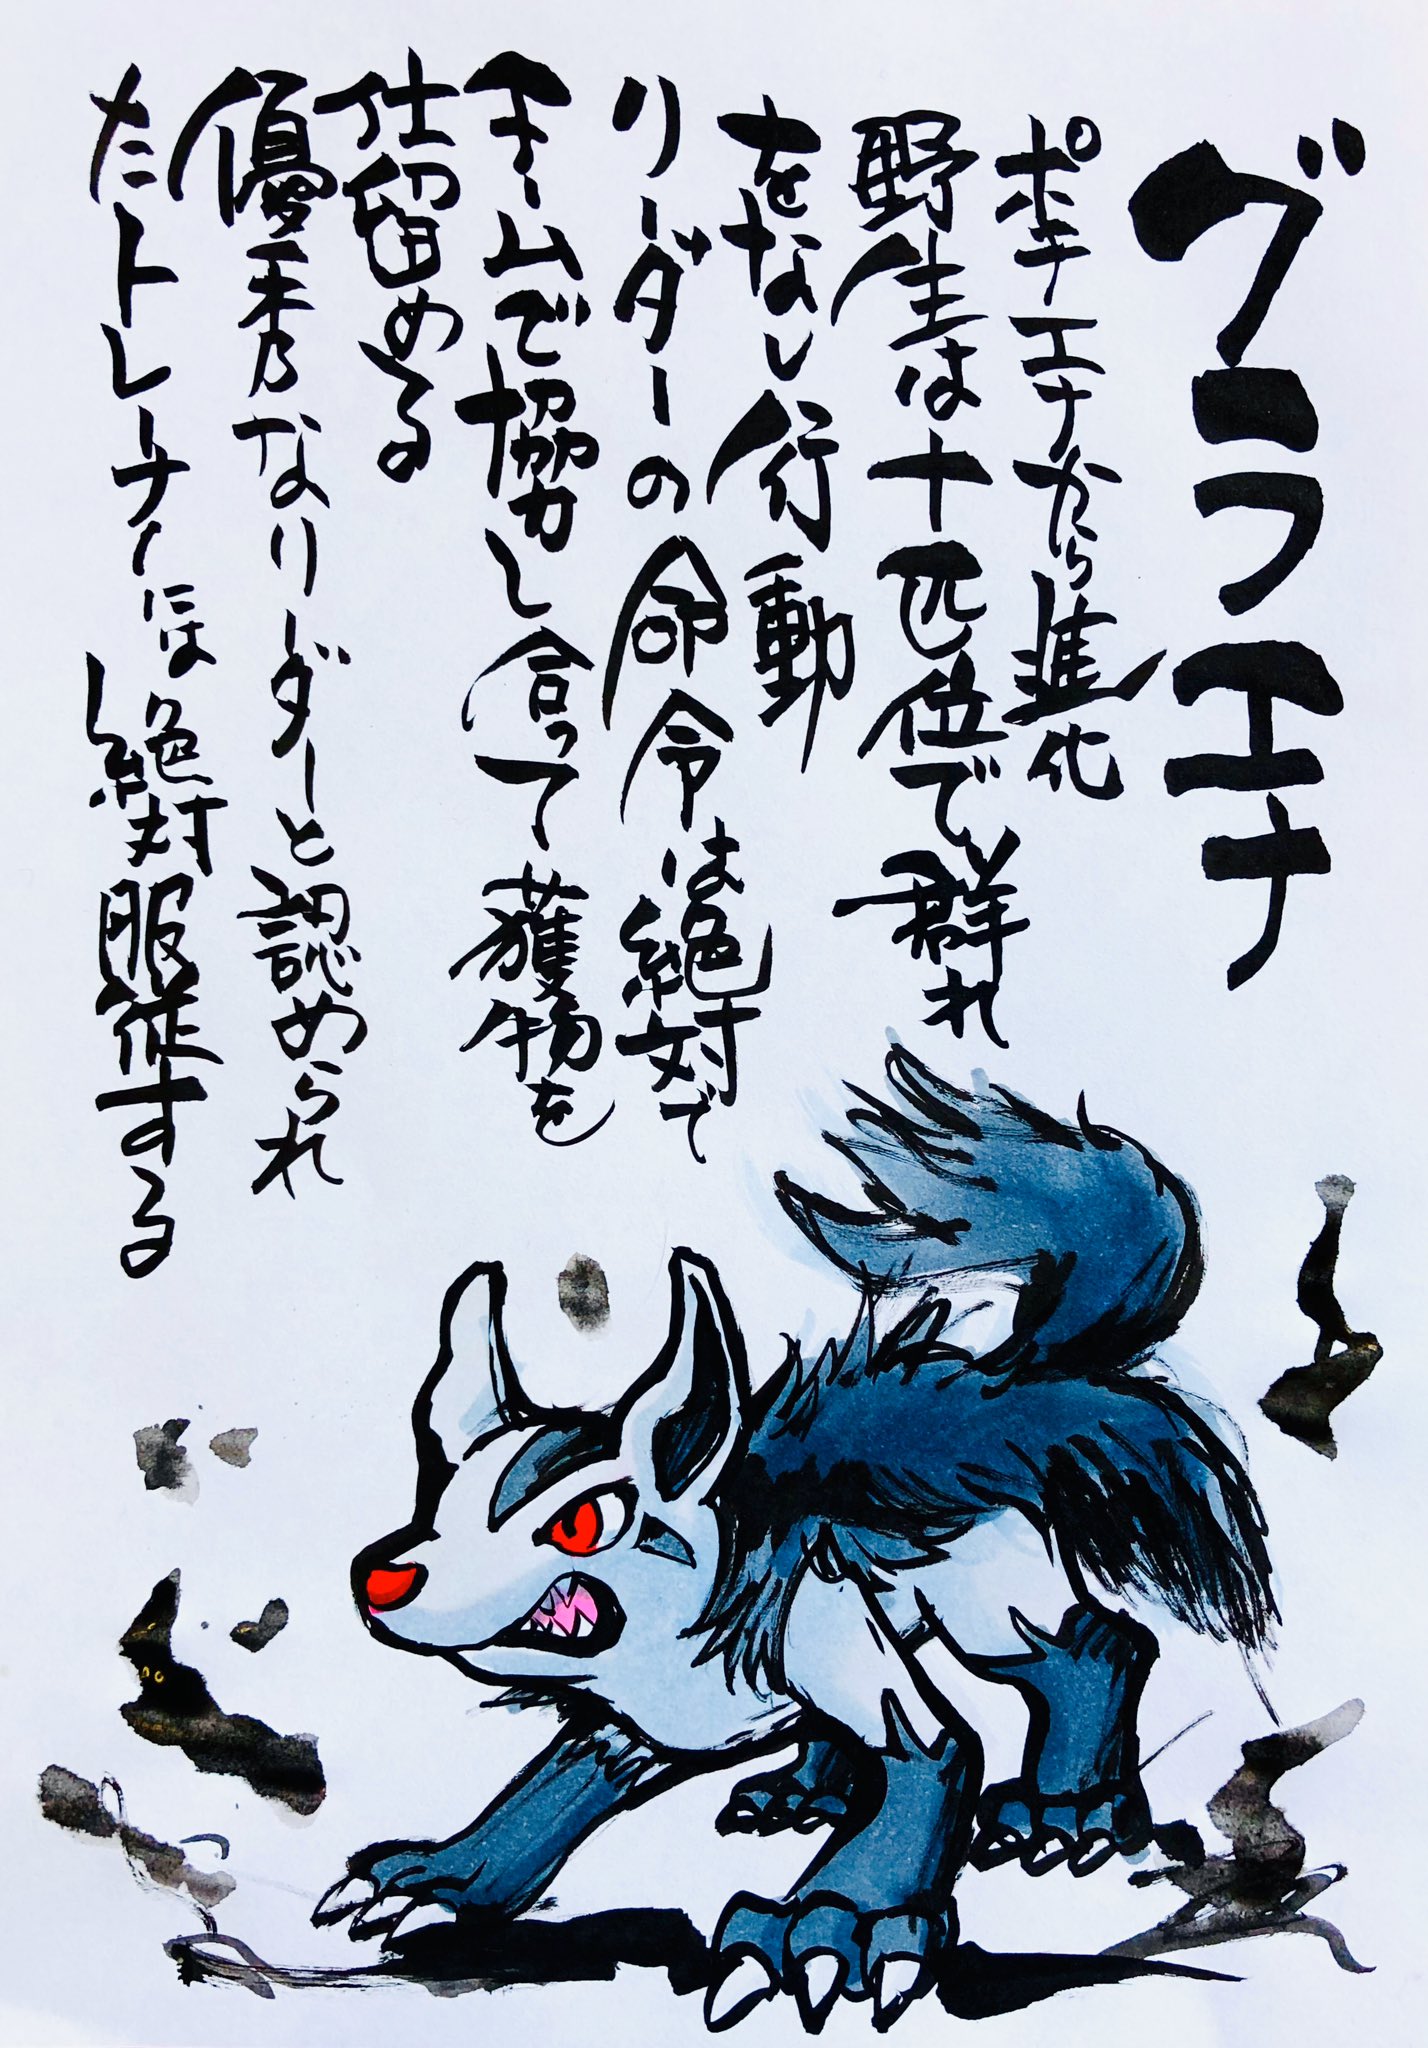 グラエナ
ポチエナから進化
野生は十匹位で群れ
をなし行動
リーダーの命令は絶対で
チームで協力し合って獲物を
仕留める
優秀なリーダーと認められ
たトレーナーには絶対服従する